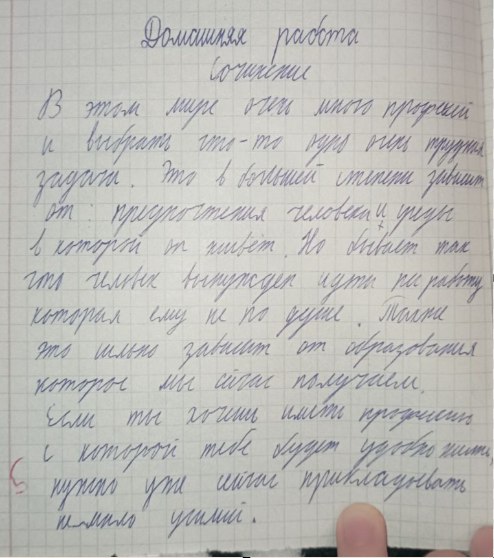 Домашняя работа
Сочинение
В этом мире очень много профессий
и выбрать что-то одно очень трудная
задача. Это в большей степени зависит
от: предпочтения человека и среды
в которой он живёт. Но бывает так
что человек вынужден идти на работу
которая ему не по душе. Также
это сильно зависит от образования
которое мы сейчас получаем.
Если ты хочешь иметь профессию
с которой тебе будет удобно жить,
нужно уже сейчас прикладывать
немало усилий.